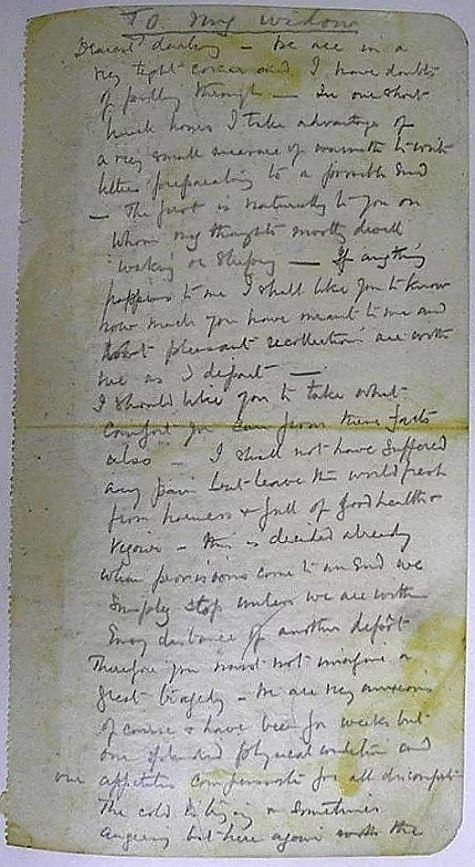 To my widow
Dearest darling – we are in a
very tight corner and I have doubts
of pulling through – In our short
lunch hours I take advantage of
a very small measure of warmth to write
letters preparatory to a possible end
– The first is naturally to you on
whom my thoughts mostly dwell
waking or sleeping – If anything
happens to me I shall like you to know
how much you have meant to me and
that pleasant recollections are with
me as I depart –
I should like you to take what
comfort you can from these facts
also – I shall not have suffered
any pain but leave the world fresh
from harness & full of good health &
vigour – this is decided already
when provisions come to an end we
simply stop unless we are within
easy distance of another depot
Therefore you must not imagine a
great tragedy – we are very anxious
of course & have been for weeks but
our splendid physical condition and
our appetites compensate for all discomfort
The cold is biting & sometimes
angering but here again the